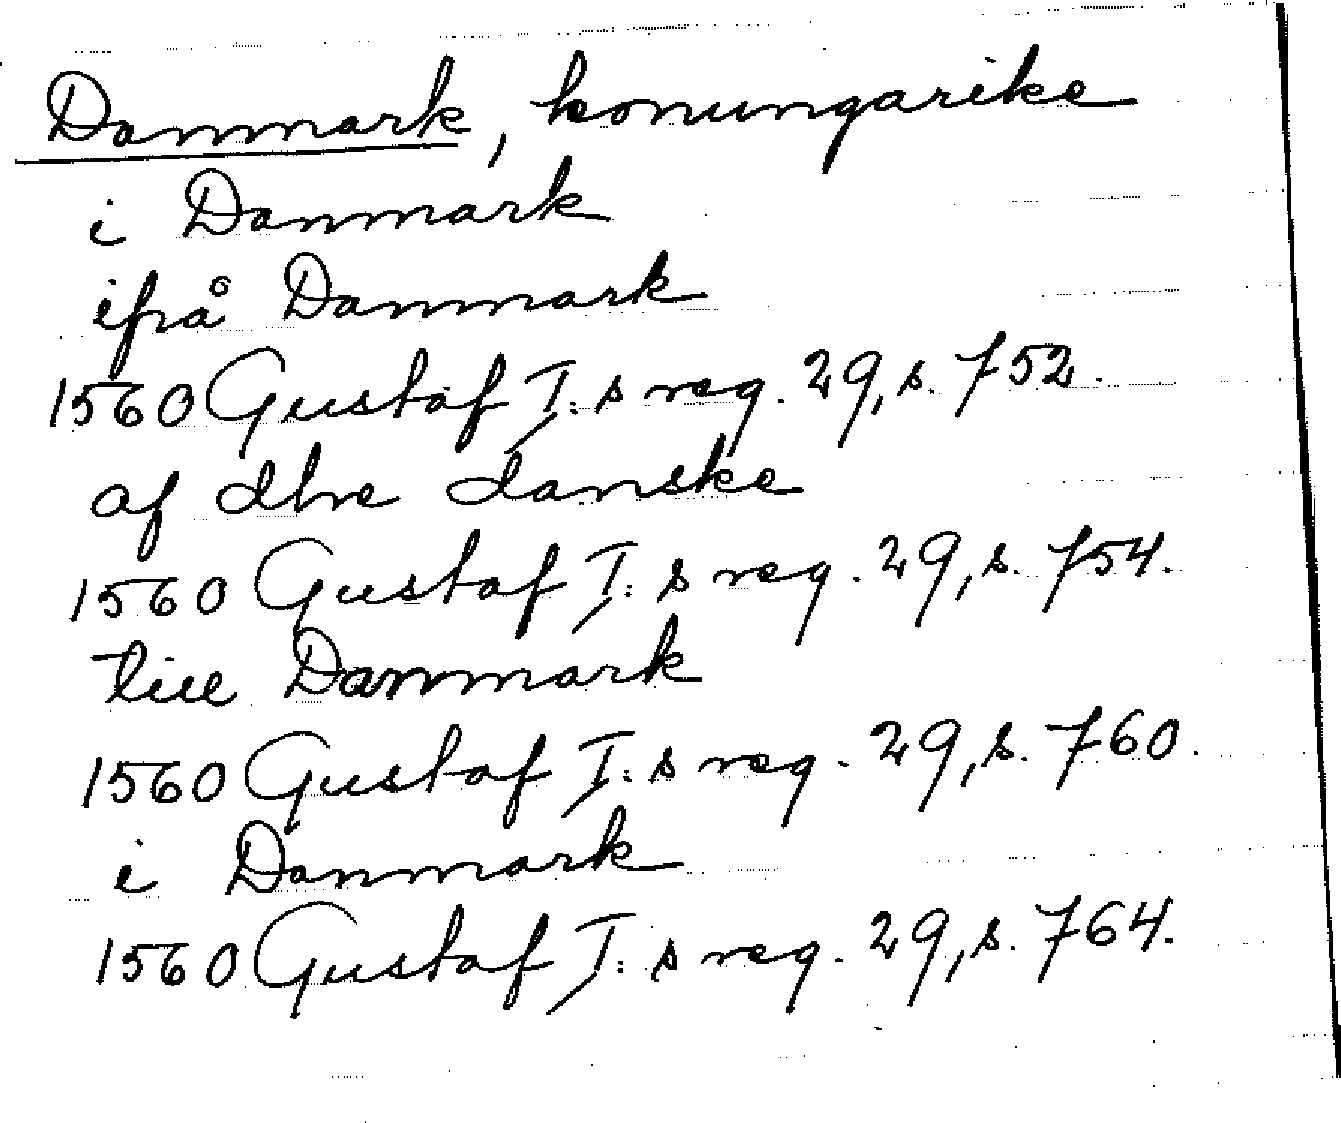 Danmark, konungarike
i Danmark
ifrå Danmark
1560 Gustaf I:s reg. 29, s. 752.
af dhe danske
1560 Gustaf I:s reg. 29, s. 754.
till Danmark
1560 Gustaf I:s reg. 29, s. 760.
i Danmark
1560 Gustaf I:s reg. 29, s. 764.